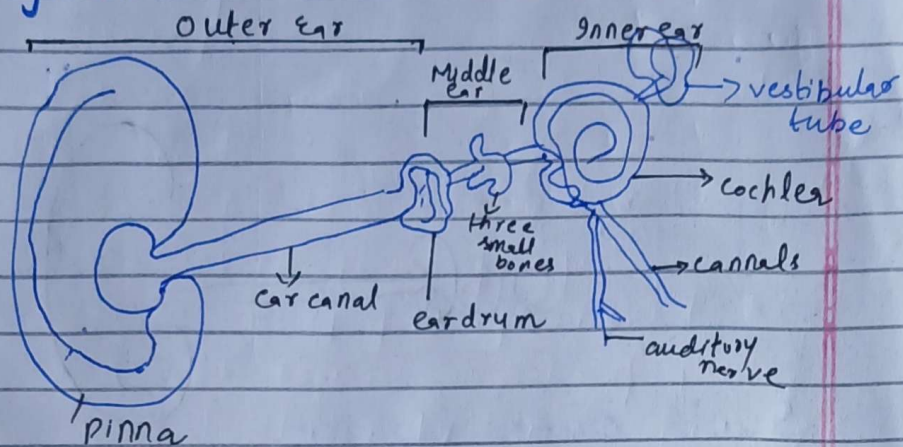 Outer Ear
Inner ear
Middle
ear
vestibular
tube
cochler
three
small
bones
cannals
ear canal
eardrum
auditory
nerve
pinna